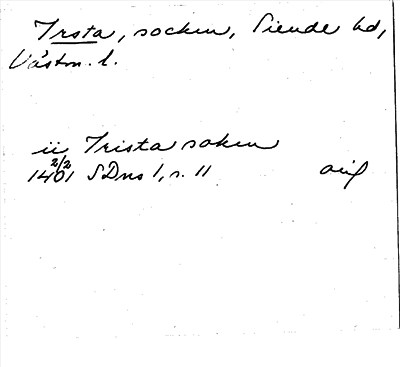 Irsta, socken, Siende hd,
Västm. l.
ii Irista soken
1401 2/2 SDns 1, s. 11 orig